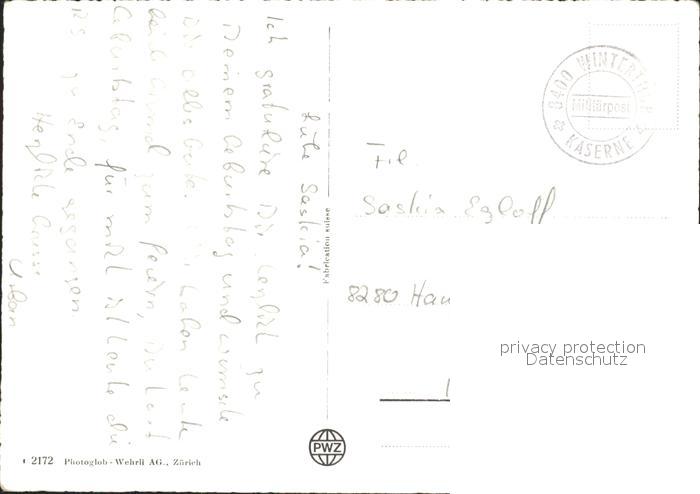 Liebe Saskia!
Ich gratuliere Dir herzlich zu
Deinem Geburtstag und wünsche
Dir alles Gute. Wir haben heute
beide Grund zum feiern, Du hast
Geburtstag, für mich ist heute die
RS zu Ende gegangen.
Herzliche Grüsse
Urban
2172 Photoglob-Wehrli AG., Zürich
Fabrication suisse
PWZ
8400 WINTERTHUR
Militärpost
KASERNE
Frl.
Saskia Egloff
8280
privacy protection
Datenschutz